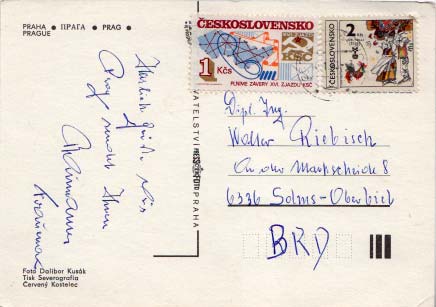 PRAHA • ПРАГА • PRAG •
PRAGUE
Herzliche Grüße aus
Prag sendet Ihnen
ČESKOSLOVENSKO
1 Kčs
KSČ
PLNÍME ZÁVĚRY XVI. SJEZDU KSČ
ČESKOSLOVENSKO
2 Kčs
Dipl. Ing.
Walter Riebisch
An der Markscheide 8
6336 Solms-Oberbiel
BRD
Foto Dalibor Kusák
Tisk Severografia
Červený Kostelec